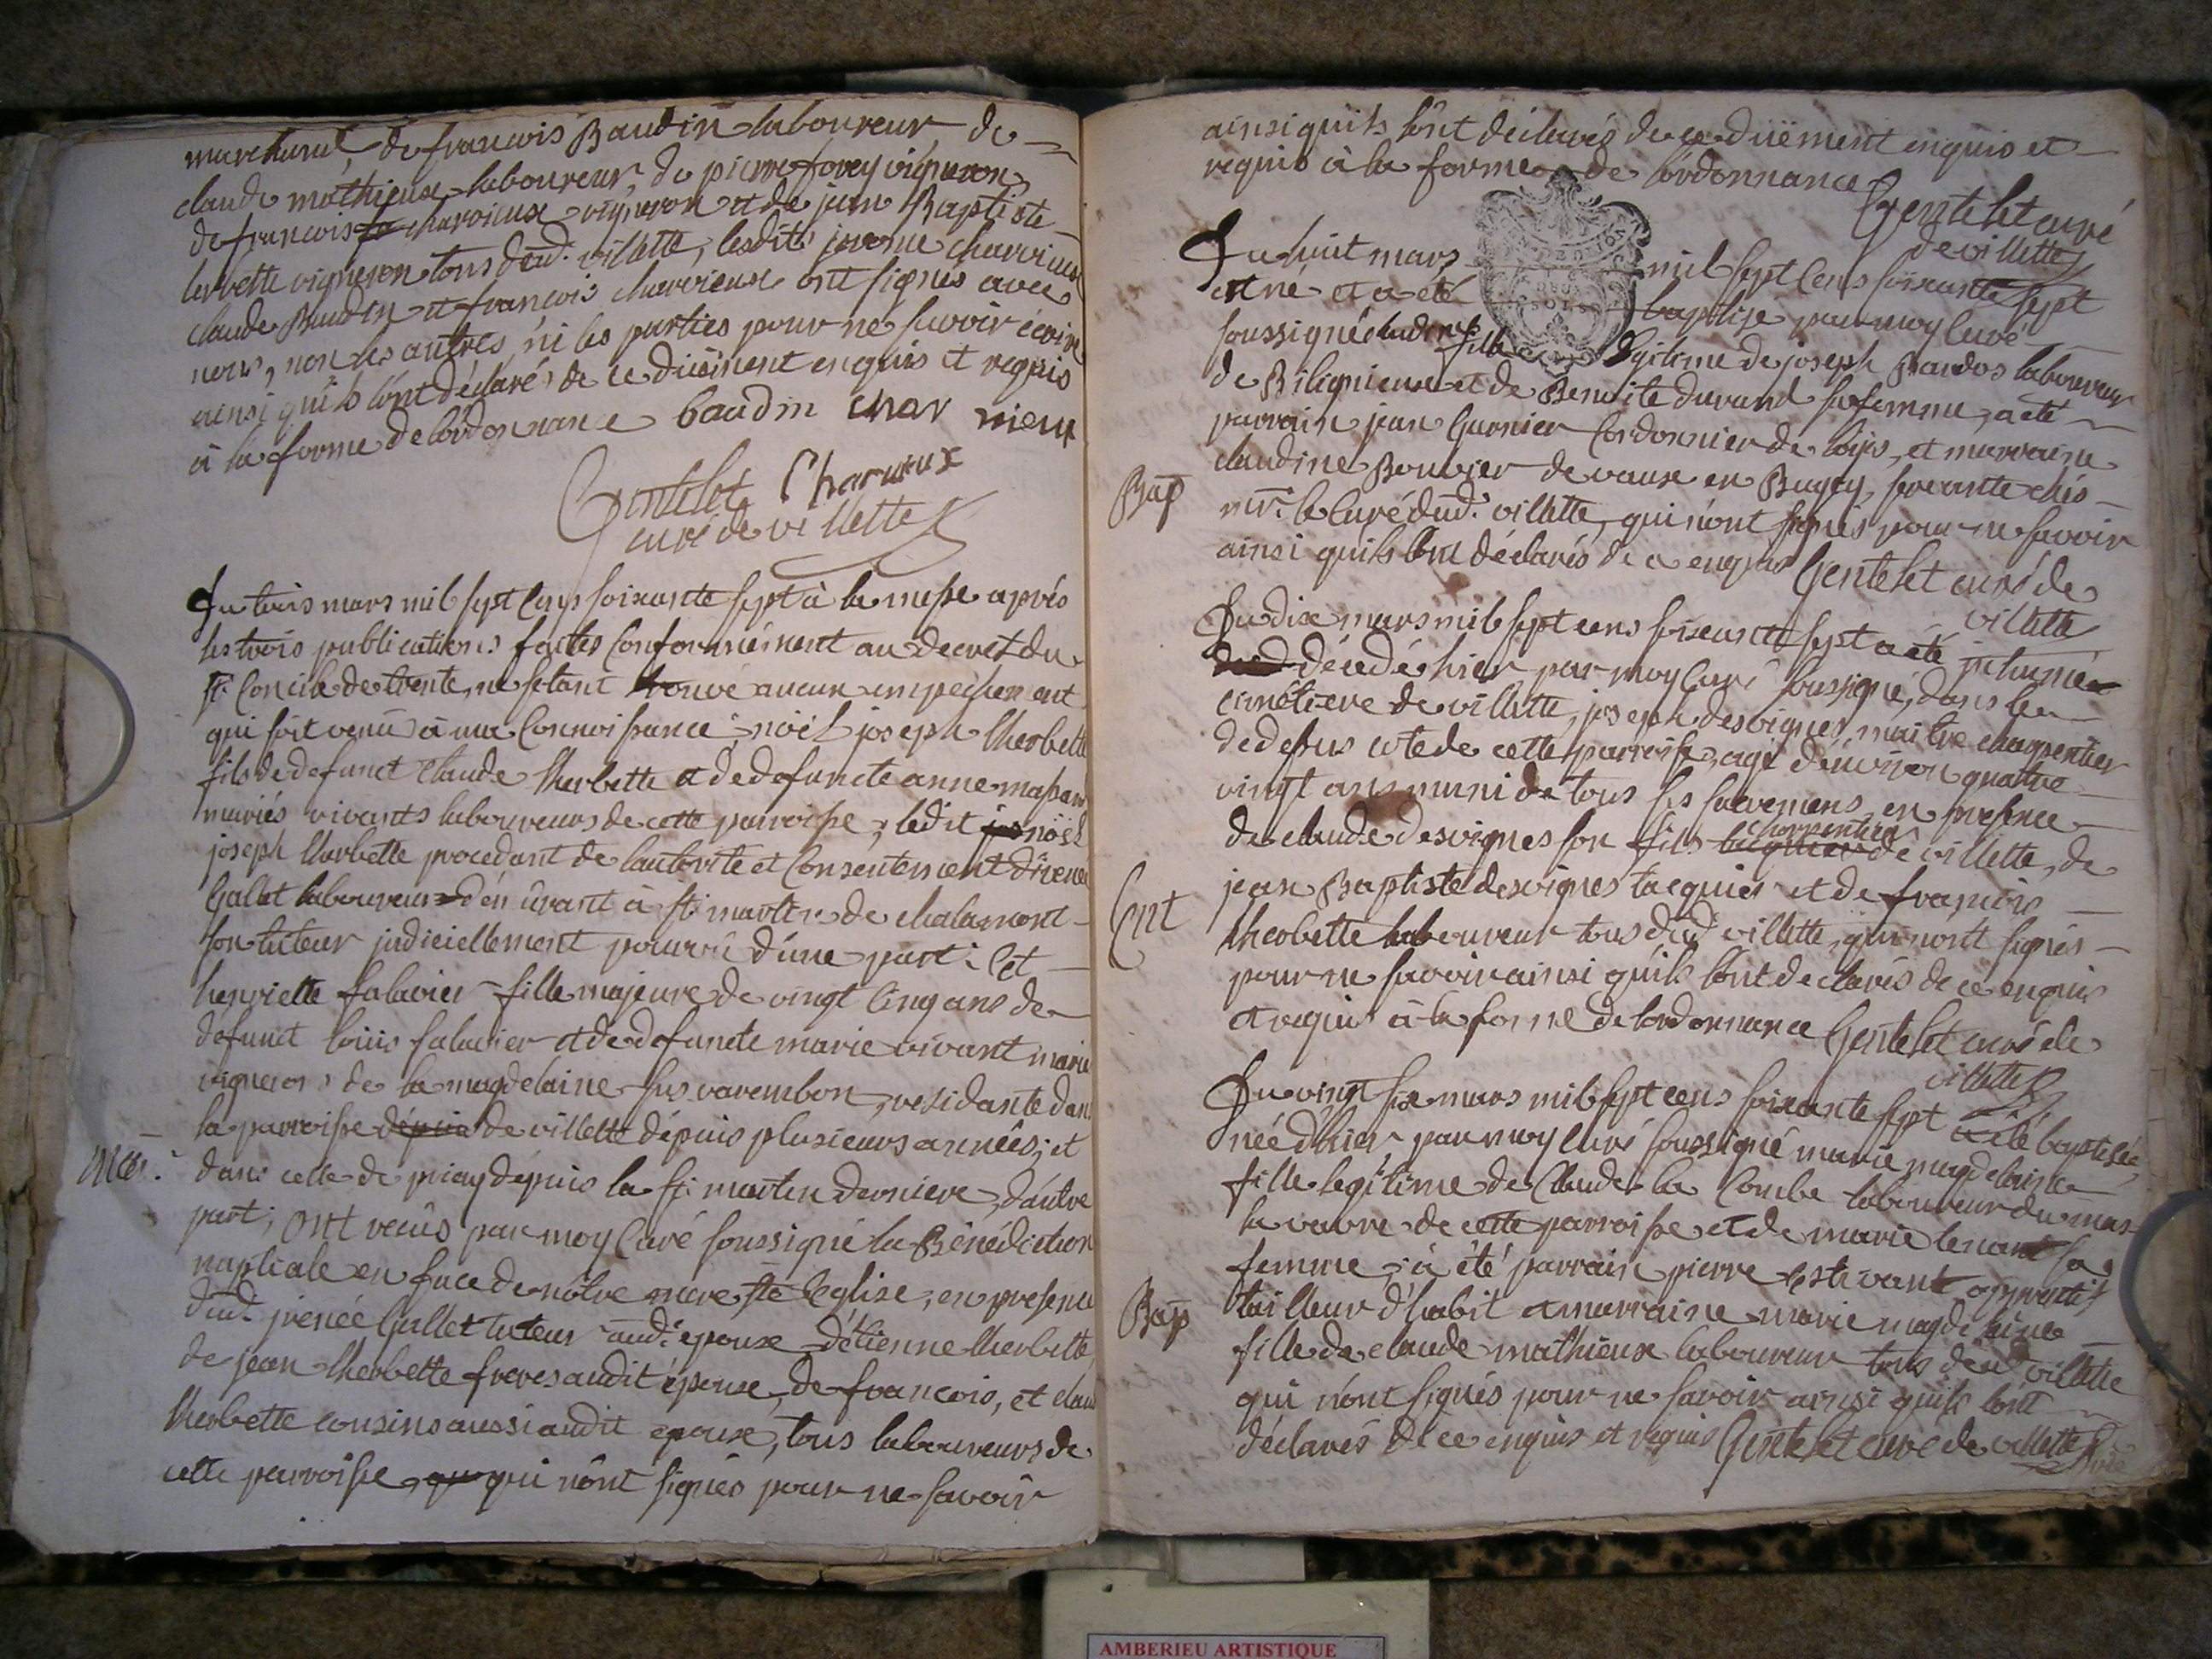 marchand, de francois Baudin laboureur de
claude mathieux laboureur, de pierre forey vigneron,
de francois charvieux vigneron et de jean Baptiste
lerbette vigneron tous dud. villette, lesdits jerome charvieux
claude Baudin et francois charvieux ont signés avec
nous, non les autres ni les parties pour ne scavoir écrire
ainsi quils lont déclarés de ce duëment enquis et requis
à la forme de lordonnance baudin Char vieux
Gentelet Charvieux
curé de villette
Du trois mars mil sept cens soixante sept à la messe aprés
les trois publications faites conformément au decret du
st. Concile de trente, ne setant trouvé aucun empechement
qui soit venu à ma connoissance; noël joseph lherbette
fils de defunct Claude lherbette et de defuncte anne
mariés vivants laboureurs de cette parroisse, ledit jos noël
joseph lherbette procedant de lautorité et consentement direnée
Gallet laboureur demeurant à st. martin de chalamont
son tuteur judiciellement pourvû d'une part; Et
henriette falavier fille majeure de vingt cinq ans de
defunct loüis falavier et de defuncte marie vivant mariés
vignerons de la magdelaine sus varembon, residante dans
la parroisse depuis de villette dépuis plusieurs années; et
Mar.
dans celle de priay dépuis la st. martin derniere, d'autre
part; ont recûs par moy Curé soussigné la Bénédiction
nuptiale en face de nôtre mere ste Eglise, en presence
dud. jrenée Gallet tuteur aud. epoux d'étienne lherbette,
de jean lherbette freres audit époux, de francois, et claude
lherbette cousins aussi audit epoux, tous laboureurs de
cette parroisse, qu qui n'ônt signés pour ne savoir
ainsi quils lônt déclarés de ce duëment enquis et
requis à la forme de lordonnance Gentelet curé
de villette
Du huit mars mil sept cens soixante sept
est né et a eté baptisé par moy curé
soussigné claudine fille legitime de joseph Baudos laboureur
de Bilignieux et de Benoite durand sa femme, a eté
parrain jean Garnier Cordonnier de , et marraine
claudine Bouvier de vaux en Bugey, servante chés
Bap
mr. le curé dud. villette, qui n'ont signés pour ne savoir
ainsi quils lont déclarés de ce enquis Gentelet curé de
villette
Du dix mars mil sept cens soixante sept a eté inhumé
décédé hier par moy Curé soussigné, dans le
cimetiere de villette, joseph desvignes, maitre charpentier
de dessus cote de cette parroisse, agé d'environ quatre
vingt ans muni de tous ses sacremens, en presence
de claude desvignes son fils charpentier de villette, de
jean Baptiste desvignes tacquier et de francois
Ent
lherbette laboureur tous dud. villette, qui n'ont signés
pour ne savoir ainsi quils lont declarés de ce enquis
et requis à la forme de lordonnance Gentelet curé de
villette
Du vingt six mars mil sept cens soixante sept a eté baptisée,
née d'hier par moy curé soussigné marie magdelaine
fille legitime de Claude la Combe laboureur du mas
la vavre de cette parroisse et de marie lenant sa
femme; à été parrain pierre estivant apprentif
Bap
tailleur d'habit et marraine marie magdelaine
fille de claude mathieux laboureur tous dud. villette
qui n'ont signés pour ne savoir ainsi quils lont
déclarés de ce enquis et requis Gentelet curé de villette
AMBERIEU ARTISTIQUE